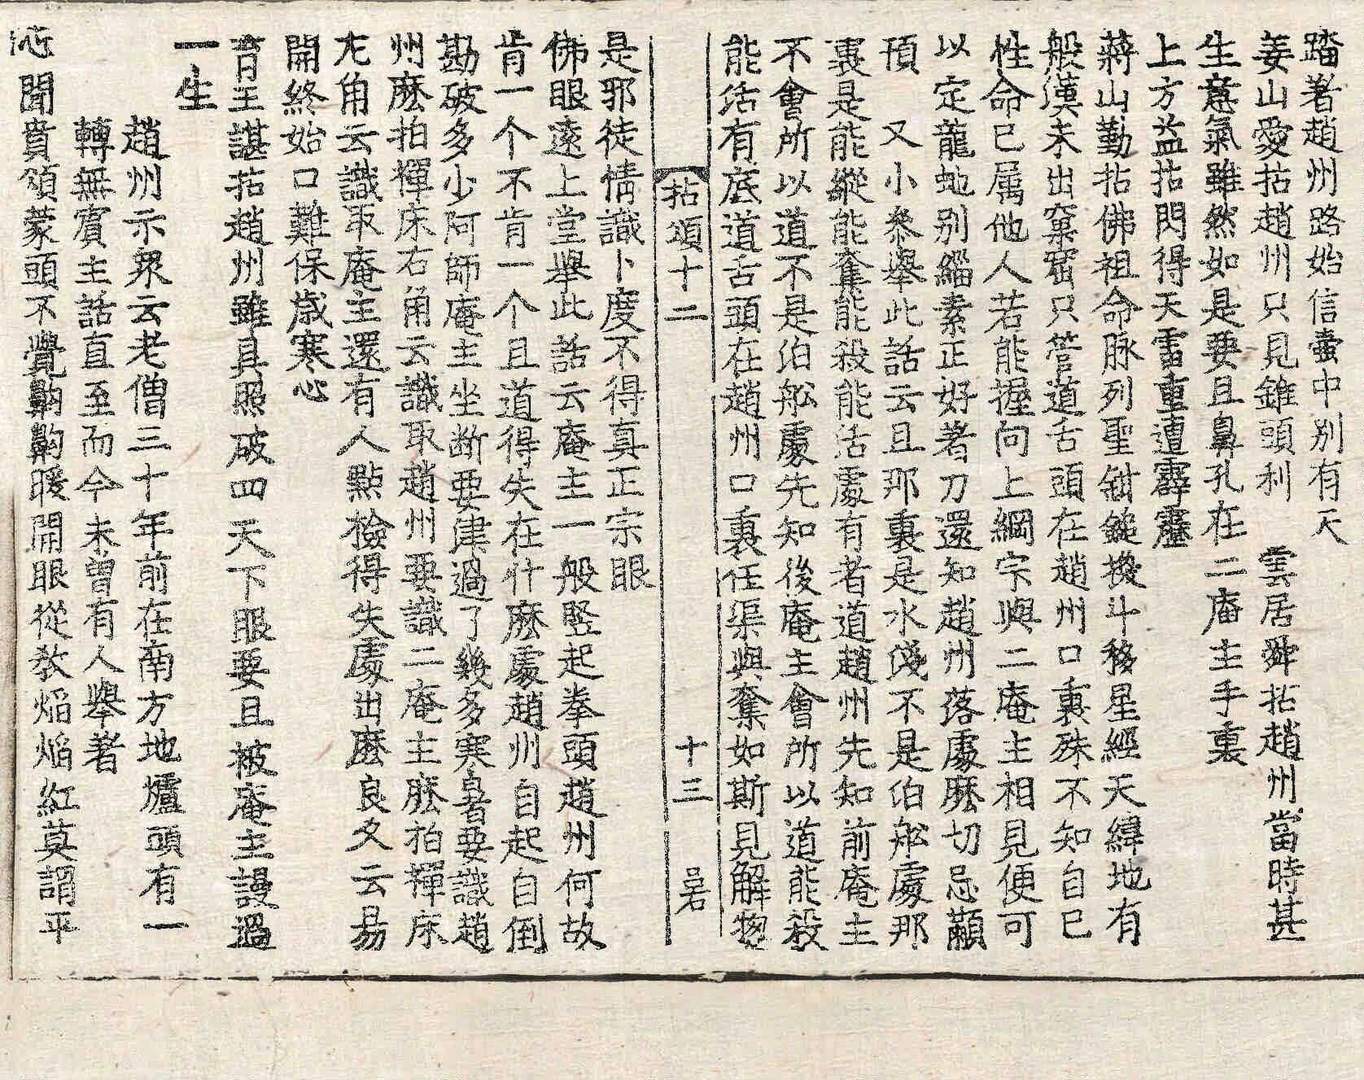 踏著趙州路始信壷中別有天
姜山愛拈趙州只見錐頭利　雲居舜拈趙州當時甚
生意氣雖然如是要且鼻孔在二庵主手裏
上方益拈閃得天雷重遭霹靂
蔣山勤拈佛祖命脉列聖鉗鎚換斗移星經天緯地有
般漢未出窠窟只管道舌頭在趙州口裏殊不知自己
性命已属他人若能握向上綱宗與二庵主相見便可
以定龍虵別緇素正好著刀還知趙州落處麽切忌顢
頇　又小叅擧此話云且那裏是水淺不是伯舩處那
裏是能縱能奪能殺能活處有者道趙州先知前庵主
不會所以道不是伯舩處先知後庵主會所以道能殺
能活有底道舌頭在趙州口裏任渠與奪如斯見解揔
拈頌十二　十三　呂
是邪徒情識卜度不得真正宗眼
佛眼遠上堂擧此話云庵主一般竪起拳頭趙州何故
肯一个不肯一个且道得失在什麽處趙州自起自倒
勘破多少阿師庵主坐断要津過了幾多寒暑要識趙
州麽拍禪床右角云識取趙州要識二庵主麽拍禪床
左角云識取庵主還有人點檢得失處出麽良久云易
開終始口難保歲寒心
育王諶拈趙州雖具照破四天下眼要且被庵主謾過
一生
趙州示衆云老僧三十年前在南方地爐頭有一
轉無賓主話直至而今未曾有人擧著
沁聞賁頌蒙頭不覺齁齁暖開眼從教焰焰紅莫謂平